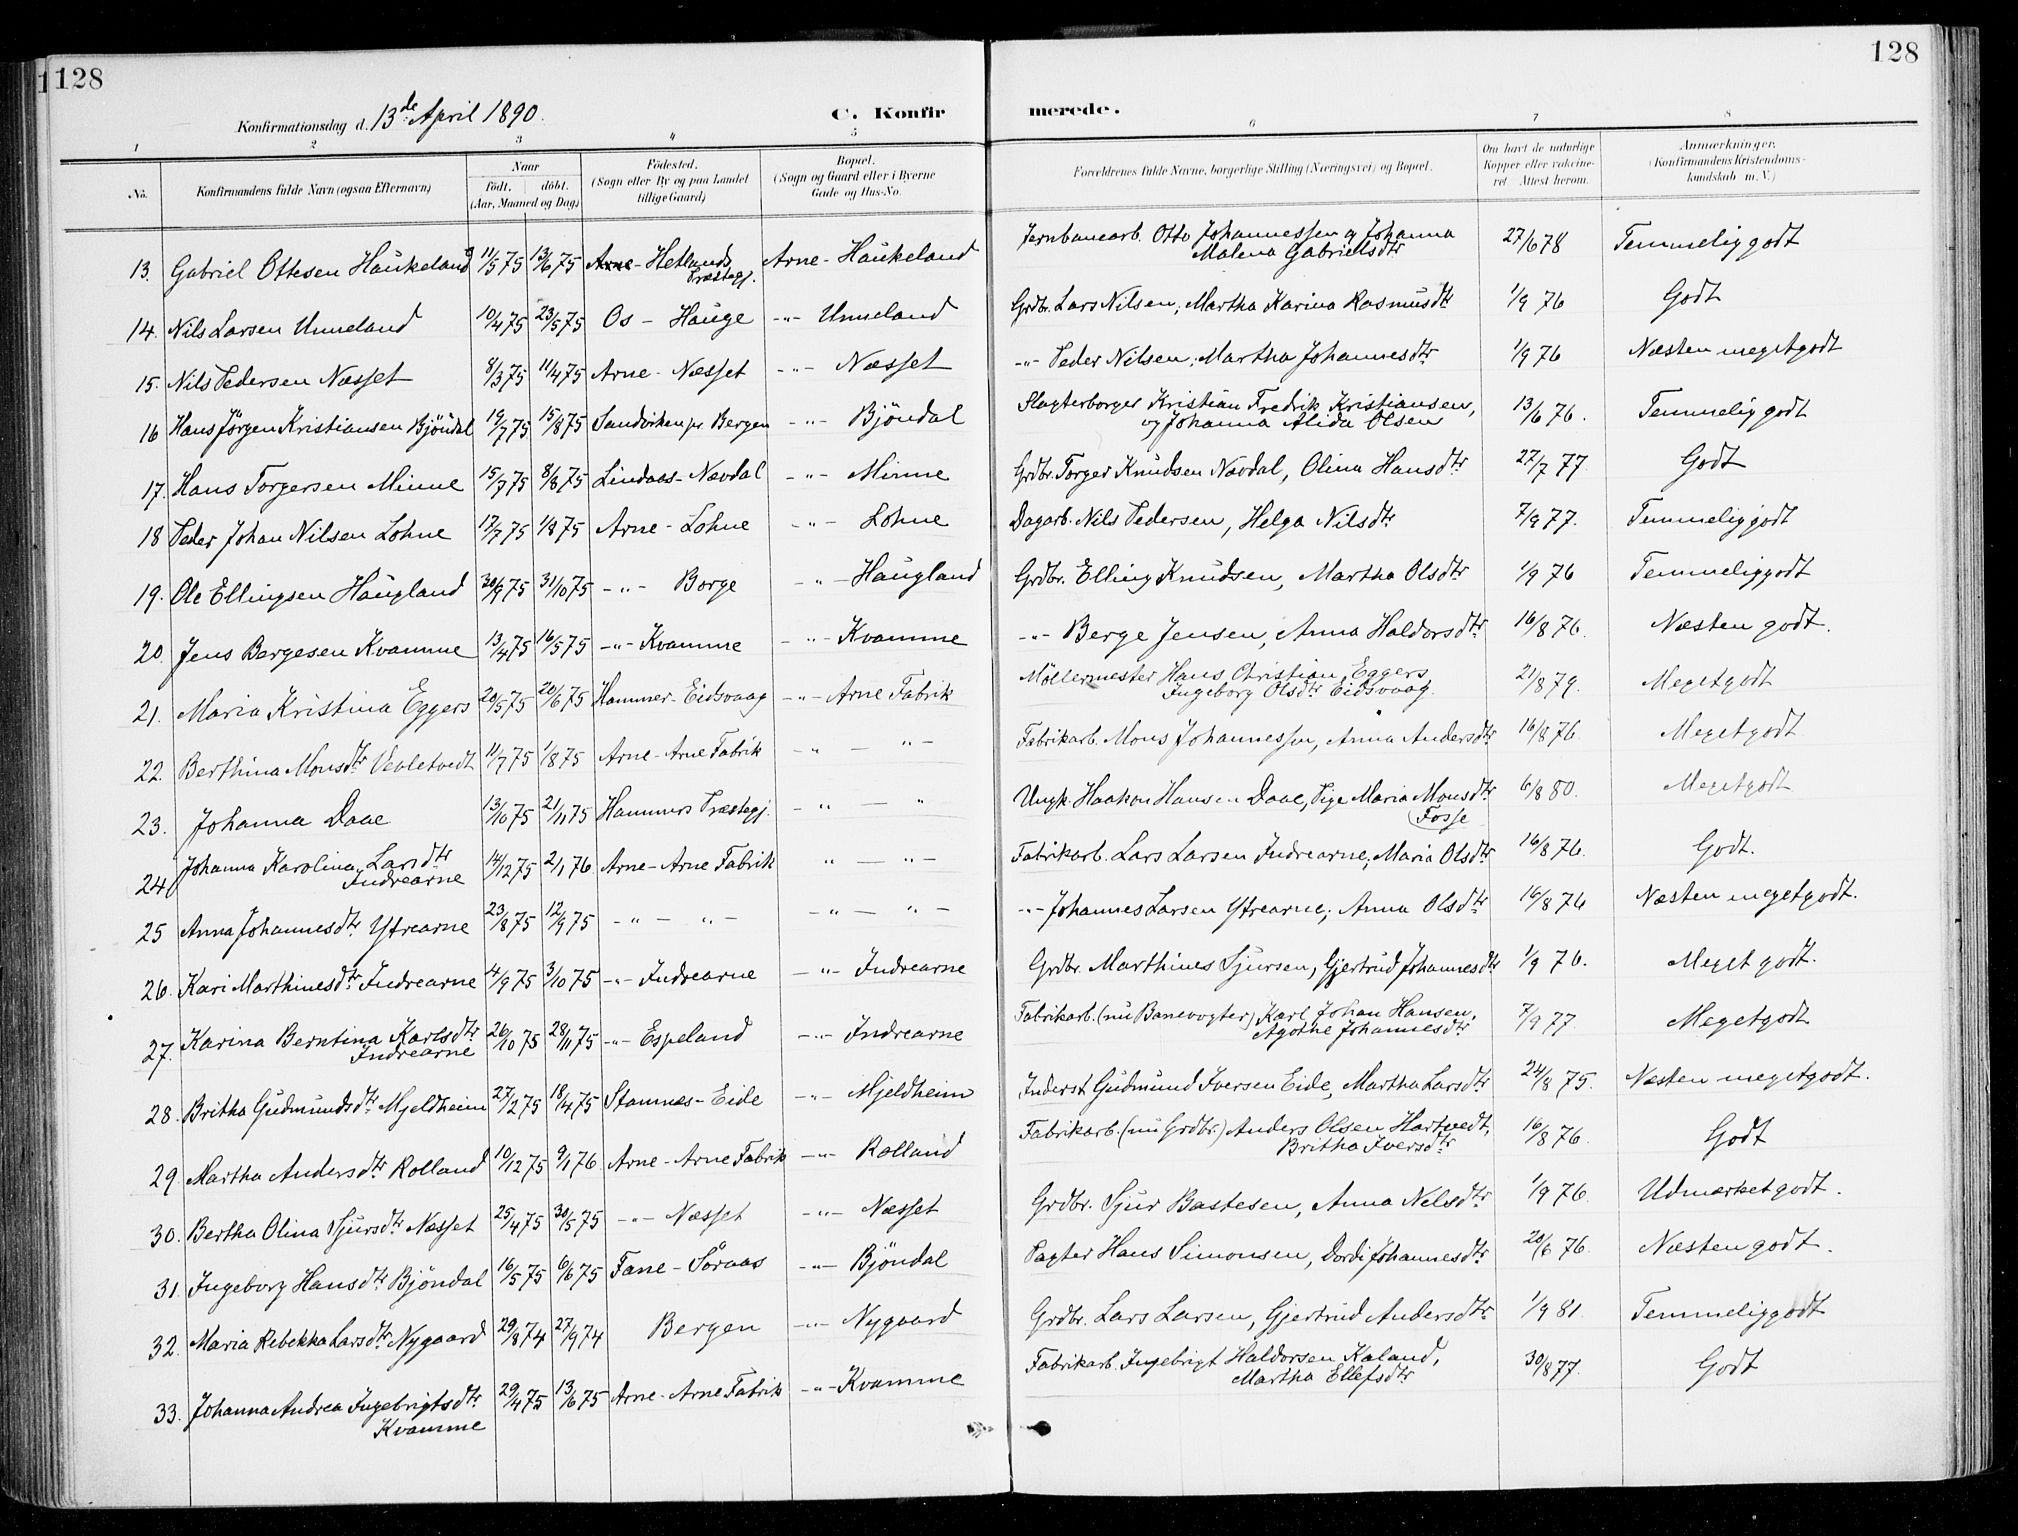 128
128
Konfirmationsdag d. 13de April 1890.
C. Konfirmerede.
1 2 3 4 5 6 7 8
No. Konfirmandens fulde Navn (ogsaa Efternavn) Naar født. døbt. (Aar, Maaned og Dag) Fødested. (Sogn eller By og paa Landet tillige Gaard) Bopæl. (Sogn og Gaard eller i Byerne Gade og Hus-No. Forældrenes fulde Navne, borgerlige Stilling (Næringsvei) og Bopæl. Om havt de naturlige Kopper eller vakcineret. Attest herom. Anmærkninger. (Konfirmandens Kristendomskundskab m. V.)
13. Gabriel Ottesen Haukeland 11/5 75 13/6 75 Arne - Hetlands Præstegj. Arne - Haukeland Jernbanearb. Otto Johannessen og Johanna Malena Gabrielsdtr 27/6 78 Temmelig godt
14. Nils Larsen Unneland 10/4 75 23/5 75 Os - Hauge -"- Unneland Grdbr. Lars Nilsen, Martha Karina Rasmusdtr 1/9 76 Godt
15. Nils Pedersen Næsset 8/3 75 11/4 75 Arne - Næsset -"- Næsset -"- Peder Nilsen, Martha Johannesdtr 1/9 76 Næsten megetgodt
16 Hans Jörgen Kristiansen Bjöndal 19/7 75 15/8 75 Sandviken pr. Bergen -"- Bjöndal Slagterborger Kristian Fredrik Kristiansen, og Johanna Alida Olsen 13/6 76. Temmelig godt
17. Hans Torgersen Minne 15/7 75 8/8 75 Lindaas - Nævdal -"- Minne Grdbr. Torger Knudsen Nævdal, Olina Hansdtr 27/7 77. Godt
18 Peder Johan Nilsen Lohne 17/7 75 1/8 75 Arne - Lohne -"- Lohne Dagarb. Nils Pedersen, Helga Nilsdtr 7/9 77. Temmelig godt
19. Ole Ellingsen Haugland 30/9 75 31/10 75 -"- Borge -"- Haugland Grdbr. Elling Knudsen, Martha Olsdtr 1/9 76 Temmeliggodt
20. Jens Bergesen Kvamme 13/4 75 16/5 75 -"- Kvamme -"- Kvamme -"- Berge Jensen, Anna Haldorsdtr 16/8 76. Næsten godt.
21. Maria Kristina Eggers 20/5 75 20/6 75 Hammer - Eidsvaag -"- Arne Fabrik Möllermester Hans Christian Eggers Ingeborg Olsdtr Eidsvaag. 21/8 79. Megetgodt
22. Berthina Monsdtr Vevletvedt 11/7 75 1/8 75 Arne - Arne Fabrik -"- "- Fabrikarb. Mons Johannessen, Anna Andersdtr 16/8 76. Megetgodt
23. Johanna Daae 13/10 75 21/11 75 Hammers Præstegj. -"- " Ungk. Haakon Hansen Daae, Pige Maria Monsdtr (Fosse 6/8 80. Megetgodt
24 Johanna Karolina Larsdtr Indrearne 14/12 75 2/1 76 Arne - Arne Fabrik "- "- Fabrikarb. Lars Larsen Indrearne, Maria Olsdtr 16/8 76. Godt.
25 Anna Johannesdtr Ytrearne 23/8 75 12/9 75 -"- "- -"- "- -"- Johannes Larsen Ytrearne, Anna Olsdtr 16/8 76 Næsten megetgodt.
26. Kari Marthinesdtr Indrearne 4/9 75 3/10 75 -"- Indrearne -"- Indrearne Grdbr. Marthines Sjursen, Gjertrud Johannesdtr 1/9 76. Meget godt.
27. Karina Berntina Karlsdtr Indrearne 26/10 75 28/11 75 -"- Espeland -"- Indrearne Fabrikarb. (nu Banevogter) Karl Johan Hansen, Agothe Johannesdtr 7/9 77 Megetgodt
28. Britha Gudmundsdtr Mjeldheim 27/2 75 18/4 75 Stamnes - Eide -"- Mjeldheim Inderst Gudmund Iversen Eide, Martha Larsdtr 24/8 75. Næsten megetgodt.
29. Martha Andersdtr Rolland 10/12 75 9/1 76 Arne - Arne Fabrik -"- Rolland Fabrikarb. (nu Grdbr.) Anders Olsen Hartvedt, Britha Iversdtr 16/8 76. Godt
30. Bertha Olina Sjursdtr Næsset 25/4 75 30/5 75 -"- Næsset -"- Næsset Grdbr. Sjur Bastesen, Anna Nilsdtr 1/9 76. Udmærketgodt.
31. Ingeborg Hansdtr Bjöndal 16/5 75 6/6 75 Fane - Söraas -"- Bjöndal Pagter Hans Simonsen, Dordi Johannesdtr 20/6 76. Næsten godt.
32. Maria Rebekka Larsdtr Nygaard 29/8 74 27/9 74 Bergen -"- Nygaard Grdbr. Lars Larsen, Gjertrud Andersdtr 1/9 81. Temmeliggodt
33. Johanna Andrea Ingebrigtsdtr Kvamme 29/4 75 13/6 75 Arne - Arne Fabrik -"- Kvamme Fabrikarb. Ingebrigt Haldorsen Kaland, Martha Ellefsdtr 30/8 77. Godt